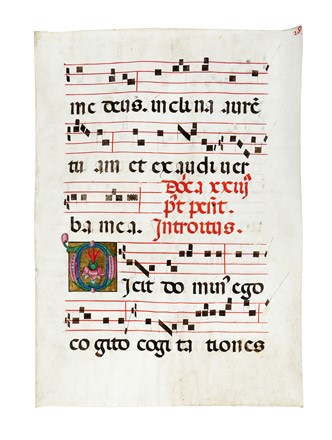 me deus. in cli na aurē
tu am et ex audi ver
Dōca xxiij
p̄t pent̄.
ba mea. Introitus.
Dicit do minꝰ ego
co gito cogi ta tiones